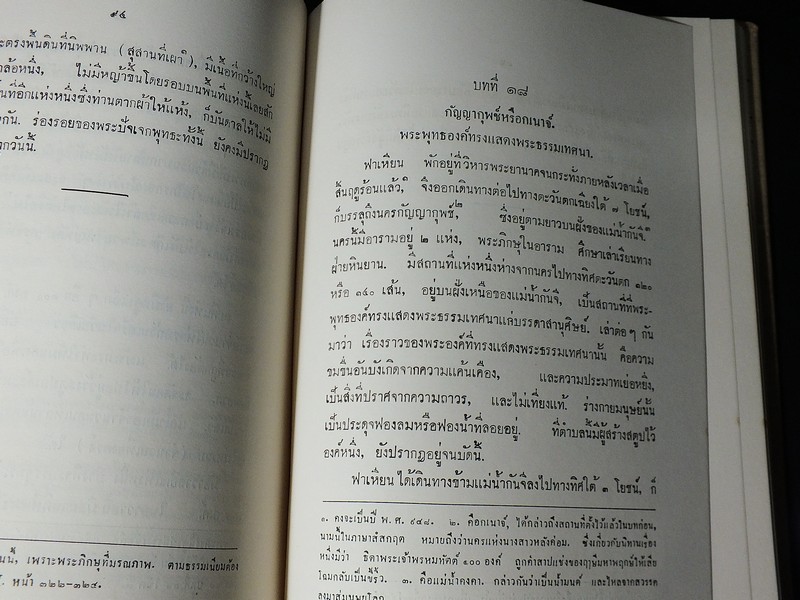 ๙๔
ะตรงพื้นดินที่นิพพาน (สุสานที่เผา๑), มีเนื้อที่กว้างใหญ่
าล้อหนึ่ง, ไม่มีหญ้าขึ้นโดยรอบบนพื้นที่แห่งนี้เลยสัก
ันที่อีกแห่งหนึ่งซึ่งท่านตากผ้าให้แห้ง, ก็บันดาลให้ไม่มี
กัน. ร่องรอยของพระปัจเจกพุทธะทั้งนี้ ยังคงมีปรากฏ
งกวันนี้.
นนี้, เพราะพระภิกษุที่มรณภาพ. ตามธรรมเนียมต้อง
. หน้า ๓๒๒-๓๒๔.
บทที่ ๑๘
กัญญากุพช์หรือกเนาจ์.
พระพุทธองค์ทรงแสดงพระธรรมเทศนา.
ฟาเหียน พักอยู่ที่วิหารพระยานาคจนกระทั่งภายหลังเวลาเมื่อ
สิ้นฤดูร้อนแล้ว,๑ จึงออกเดินทางต่อไปทางตะวันตกเฉียงใต้ ๗ โยชน์,
ก็บรรลุถึงนครกัญญากุพช์,๒ ซึ่งอยู่ตามยาวบนฝั่งของแม่น้ำกันจี.๓
นครนี้มีอารามอยู่ ๒ แห่ง, พระภิกษุในอาราม ศึกษาเล่าเรียนทาง
ฝ่ายหินยาน. มีสถานที่แห่งหนึ่งห่างจากนครไปทางทิศตะวันตก ๑๒๐
หรือ ๑๔๐ เส้น, อยู่บนฝั่งเหนือของแม่น้ำกันจี, เป็นสถานที่ที่พระ-
พุทธองค์ทรงแสดงพระธรรมเทศนาแด่บรรดาสานุศิษย์. เล่าต่อๆ กัน
มาว่า เรื่องราวของพระองค์ที่ทรงแสดงพระธรรมเทศนานั้น คือความ
ขมขื่นอันบังเกิดจากความแค้นเคือง, และความประมาทเย่อหยิ่ง,
เป็นสิ่งที่ปราศจากความถาวร, และไม่เที่ยงแท้. ร่างกายมนุษย์นั้น
เป็นประดุจฟองลมหรือฟองน้ำที่ลอยอยู่. ที่ตำบลนี้มีผู้สร้างสตูปไว้
องค์หนึ่ง, ยังปรากฏอยู่จนบัดนี้.
ฟาเหียน ได้เดินทางข้ามแม่น้ำกันจีลงไปทางทิศใต้ ๓ โยชน์, ก็
๑. คงจะเป็นปี พ. ศ. ๙๔๘. ๒. คือกเนาจ์, ได้กล่าวถึงสถานที่ตั้งไว้แล้วในบทก่อน,
นามนี้ในภาษาสํสกฤต หมายถึงว่านครแห่งนางสาวหลังค่อม. ซึ่งเกี่ยวกับนิทานเรื่อง
หนึ่งมีว่า ธิดาพระเจ้าพรหมทัตต์ ๑๐๐ องค์ ถูกคำสาปแช่งของฤาษีมหาพฤกษ์ให้เสีย
โฉมกลับเป็นขี้ริ้ว. ๓. คือแม่น้ำคงคา. กล่าวกันว่าเป็นน้ำมนต์ และไหลจากสวรรค์
ลงมาสู่มนุษยโลก